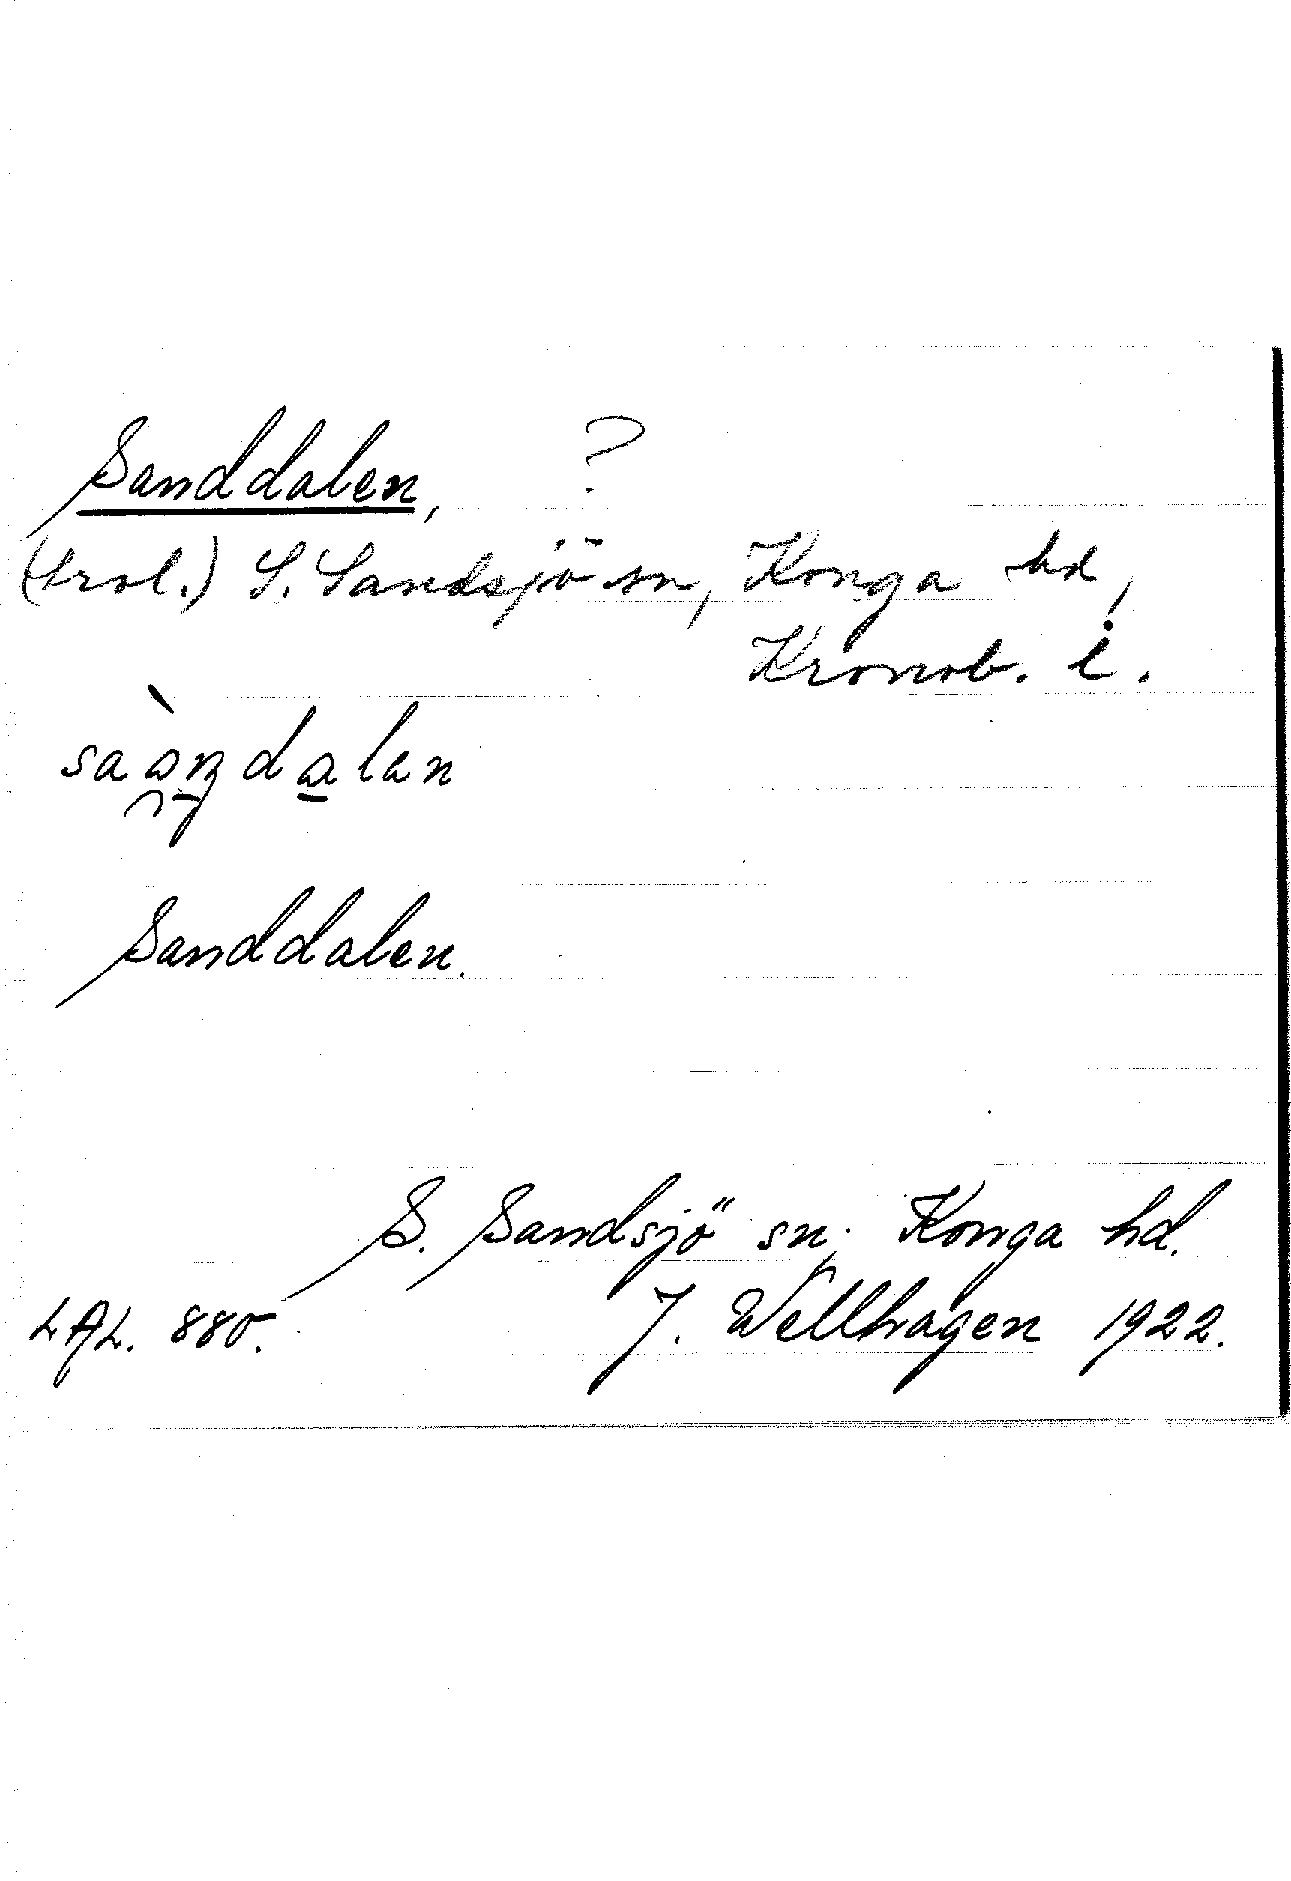 Sanddalen, ?
(trol.) S. Sandsjö sn, Konga hd,
Kronob. l.
Sanddalen.
S. Sandsjö sn. Konga hd.
LAL. 880. J. Wellhagen 1922.